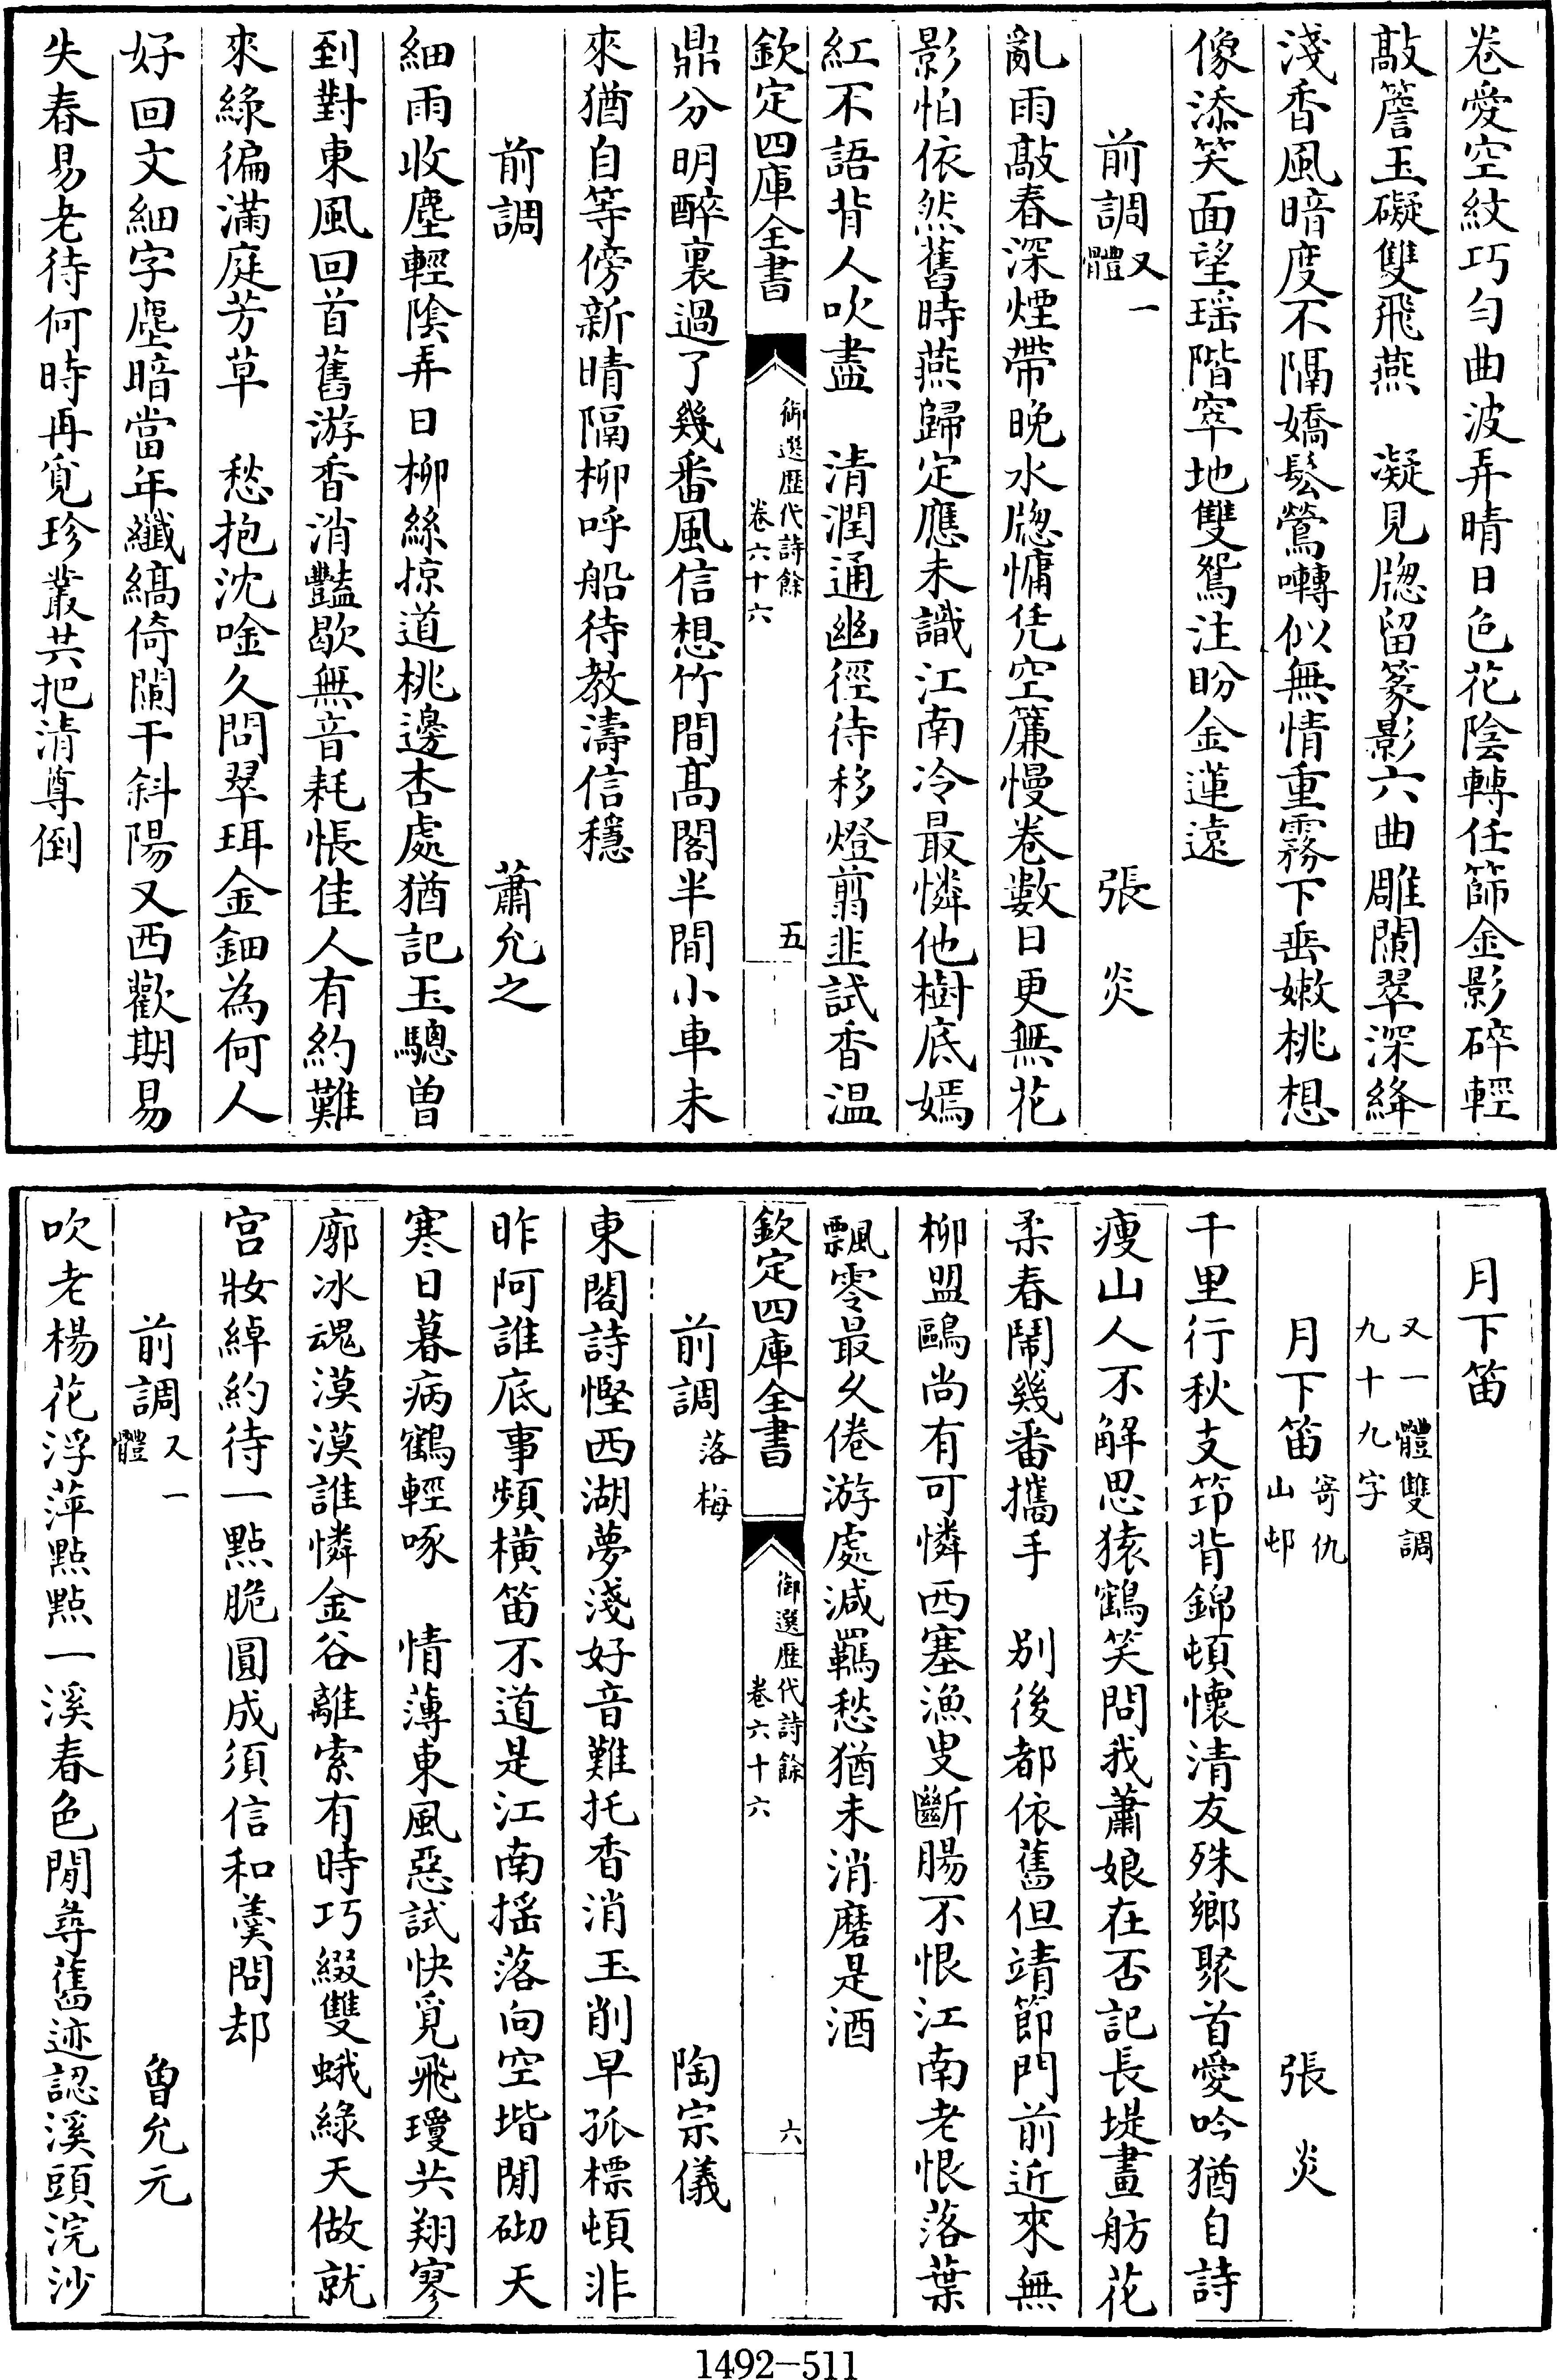 卷愛空紋巧勻曲波弄晴日色花陰轉任篩金影碎輕
敲簷玉礙雙飛燕　凝見牎留篆影六曲雕闌翠深絳
淺香風暗度不隔嬌鬆鶯囀似無情重霧下垂嫩桃想
像添笑面望瑶階窣地雙鴛注盼金蓮遠
前調又一體　張炎
亂雨敲春深煙帶晚水牎慵凭空簾慢卷數日更無花
影怕依然舊時燕歸定應未識江南冷最憐他樹底嫣
紅不語背人吹盡　清潤通幽徑待移燈翦韭試香温
欽定四庫全書　御選歷代詩餘卷六十六　五
鼎分明醉裏過了幾番風信想竹間髙閣半閒小車未
來猶自等傍新晴隔柳呼船待教濤信穩
前調　蕭允之
細雨收塵輕陰弄日柳絲掠道桃邊杏處猶記玉驄曽
到對東風回首舊游香消豔歇無音耗悵佳人有約難
來緑徧滿庭芳草　愁抱沈唫久問翠珥金鈿為何人
好回文細字塵暗當年纖縞倚闌干斜陽又西歡期易
失春易老待何時再覓珍叢共把清尊倒
月下笛
又一體雙調
九十九字
月下笛寄仇山邨　張炎
千里行秋支筇背錦頓懷清友殊鄉聚首愛吟猶自詩
瘦山人不解思猿鶴笑問我蕭娘在否記長堤畫舫花
柔春鬧幾番攜手　別後都依舊但靖節門前近來無
柳盟鷗尚有可憐西塞漁叟斷腸不恨江南老恨落葉
飄零最久倦游處減羈愁猶未消磨是酒
欽定四庫全書　御選歷代詩餘卷六十六　六
前調落梅　陶宗儀
東閣詩慳西湖夢淺好音難托香消玉削早孤標頓非
昨阿誰底事頻横笛不道是江南摇落向空堦閒砌天
寒日暮病鶴輕啄　情薄東風惡試快覓飛瓊共翔寥
廓冰魂漠漠誰憐金谷離索有時巧綴雙蛾綠天做就
宫妝綽約待一點脆圓成須信和羮問却
前調又一體　曽允元
吹老楊花浮萍點點一溪春色閒尋舊迹認溪頭浣沙
1492-511